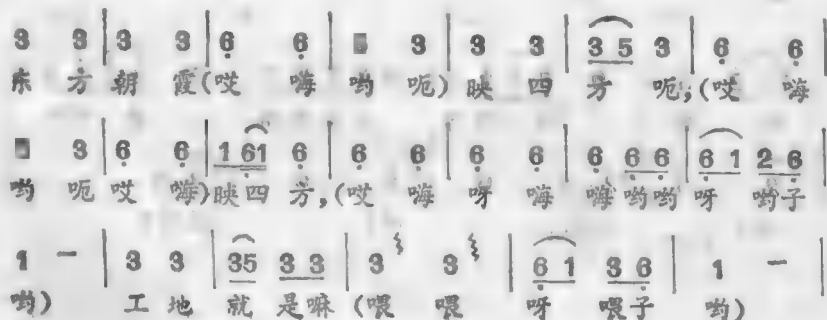 3 3 | 3 3 | 6 6 | 3 | 3 3 | 3 5 3 | 6 6 |
东 方 朝 霞(哎 嗨 哟 呃)映 四 方 呃,(哎 嗨
3 | 6 6 | 1 61 6 | 6 6 | 6 6 | 6 6 6 | 6 1 2 6 |
哟 呃 哎 嗨)映 四 方,(哎 嗨 呀 嗨 嗨 哟哟 呀 哟子
1 - | 3 3 | 35 3 3 | 3 3 | 6 1 3 6 | 1 - |
哟) 工 地 就 是嘛 (喂 喂 呀 喂子 哟)